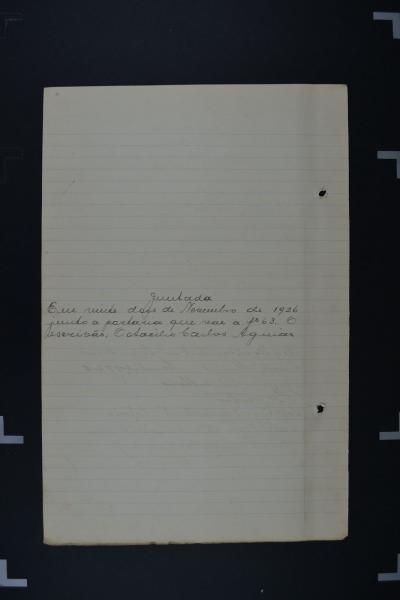 Juntada
Em vinte dois de Novembro de 1926
junto a portaria que vae a fs 63. O
escrivão, Octacilio Carlos Aguiar